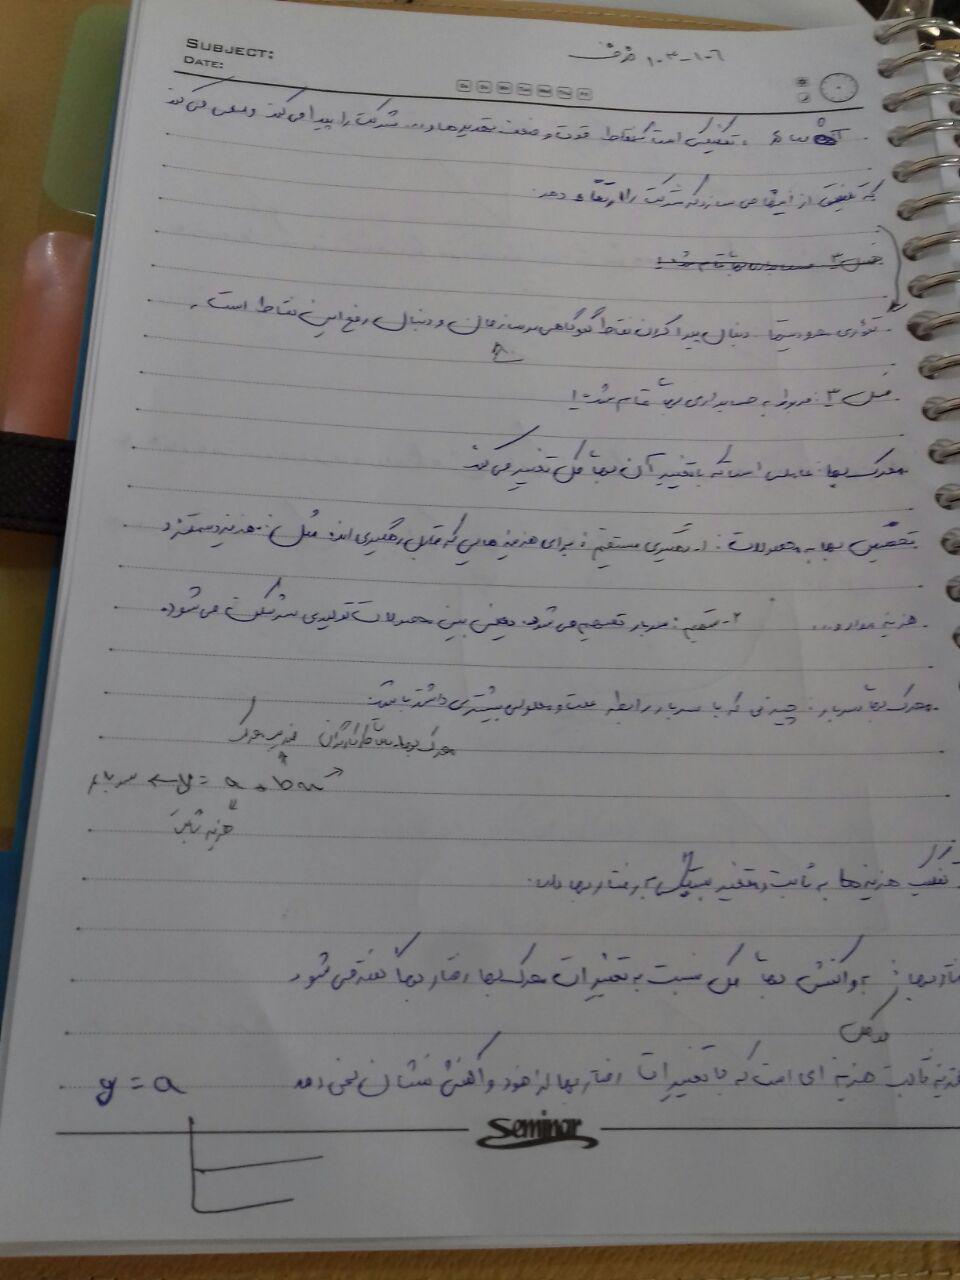 SUBJECT:
DATE:
Sa Su Mo Tue Wed Thu Fri
تکنیکی است که نقاط قوت و ضعف تهدیدها و... شرکت را پیدا می‌کند و سعی می‌کند
که از شرکت را ارتقاء دهد.
فصل ۳
تئوری محدودیتها دنبال پیدا کردن نقاط گلوگاهی در سازمان و دنبال رفع این نقاط است.
فصل ۳: مربوط به حسابداری بهای تمام شده!
محرک بها: عاملی است که با تغییر آن بهای کل تغییر می‌کند
تخصیص بها به محصولات: ۱- ردگیری مستقیم: برای هزینه هایی که قابل رهگیری اند. مثل: هزینه دستمزد و
هزینه مواد و... ۲- تسهیم: سربار تقسیم می‌شود. یعنی بین محصولات تولیدی سرشکن می‌شود.
محرک بهای سربار: چیزی که با سربار رابطه علت و معلولی بیشتری داشته باشد.
ضریب محرک
سربار ← y = a + bx
هزینه ثابت
تفکیک هزینه‌ها به ثابت و متغیر بستگی به رفتار بها دارد.
رفتار بها: به واکنش بهای کل نسبت به تغییرات محرک بها رفتار بها گفته می‌شود
هزینه ثابت هزینه ای است که با تغییرات رفتار بها از خود واکنش نشان نمی دهد
y = a
Seminar